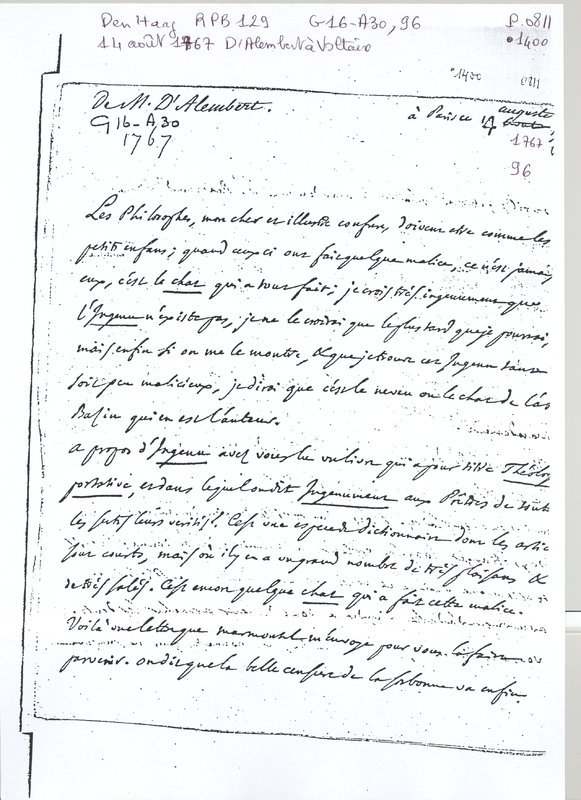 Den Haag RPB 129 G16-A30, 96 P.0811
14 août 1767 D'Alembert à Voltaire °1400
°1400 0811
De M. D'Alembert.
à Paris ce 14 auguste
G16-A30
1767
1767
96
Les Philosophes, mon cher et illustre confrere, doivent etre comme les
petits enfans; quand ceux ci ont fait quelque malice, ce n'est jamais
eux, c'est le chat qui a tout fait; je crois très ingenuement que
l'Ingenu n'existe pas, je ne le croirai que le plus tard que je pourrai,
mais enfin si on me le montre, & que je trouve cet Ingenu tant
soit peu malicieux, je dirai que c'est le neveu ou le chat de l'ab
Bazin qui en est l'auteur.
a propos d'Ingenu avez vous lu un livre qui a pour titre Théolog
portative, et dans lequel on dit Ingenuement aux Prêtres de tout
les sectes leurs verités? C'est une espece de dictionnaire dont les artic
sont courts, mais où il y en a un grand nombre de très plaisans &
de très salés. C'est encore quelque chat qui a fait cette malice.
Voilà une lettre que marmontel m'envoye pour vous la faire
parvenir. on dit que la belle censure de la sorbonne va enfin